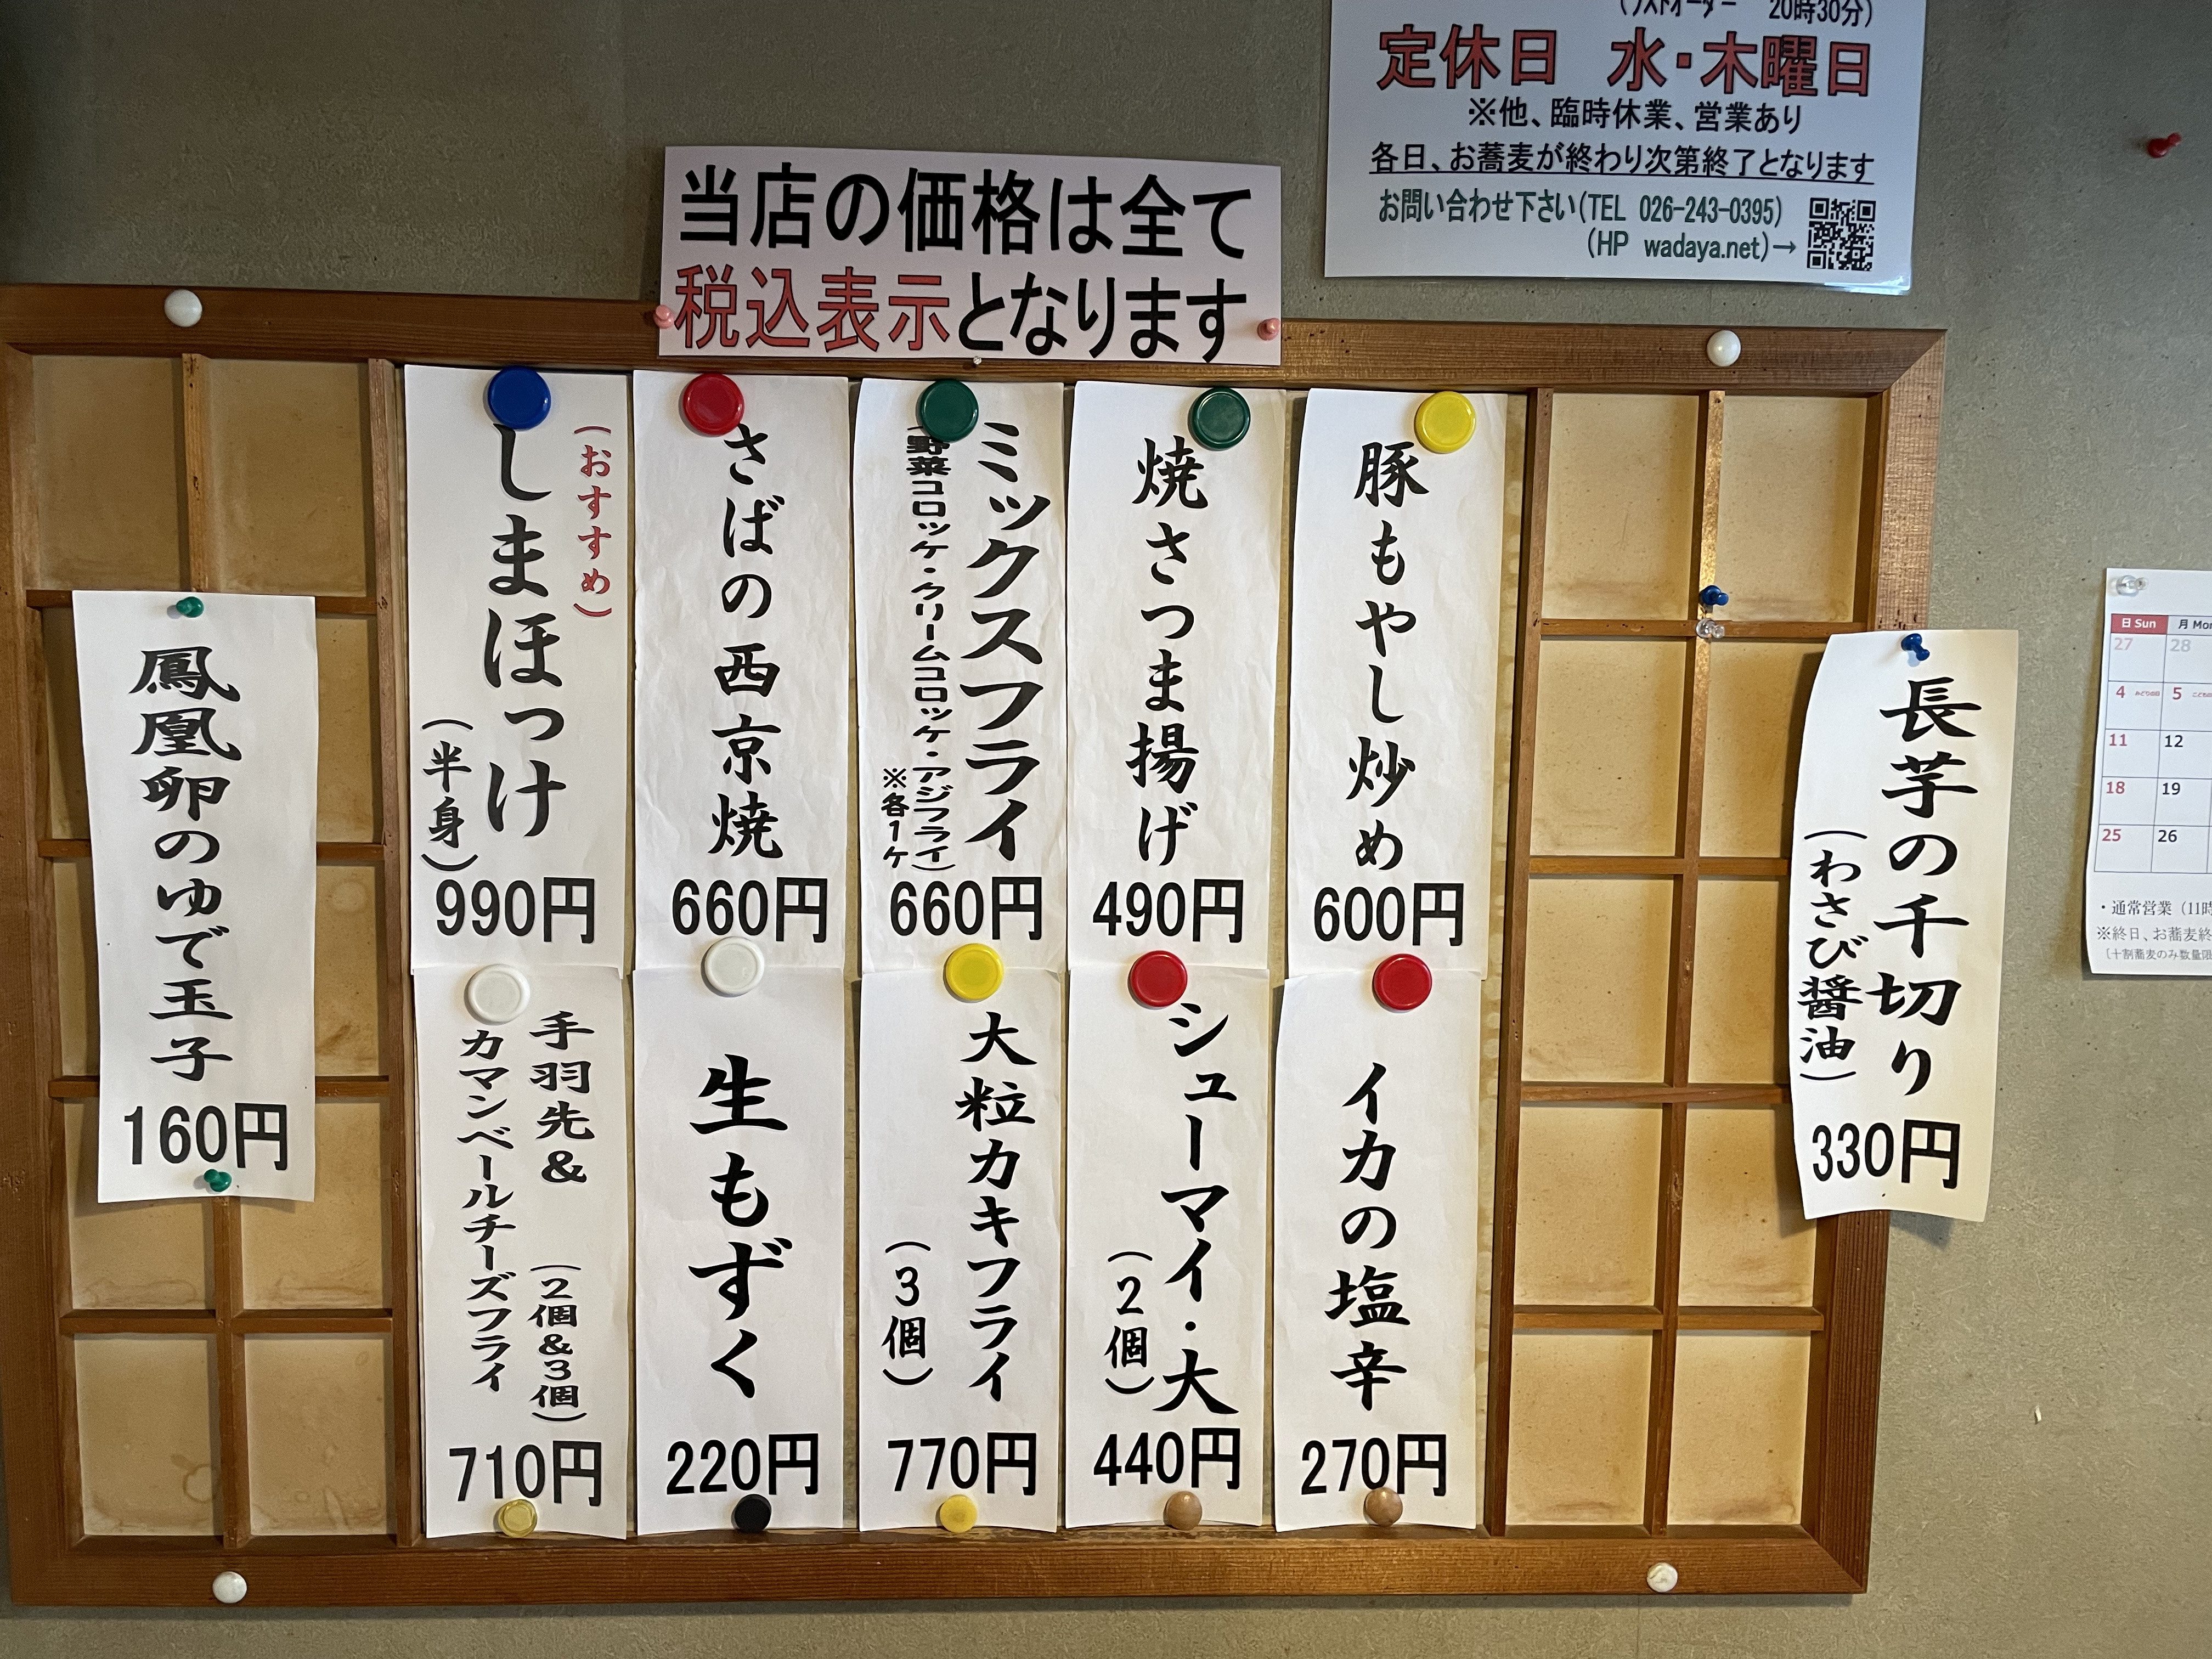 (ラストオーダー　20時30分)
定休日　水・木曜日
※他、臨時休業、営業あり
各日、お蕎麦が終わり次第終了となります
お問い合わせ下さい(TEL 026-243-0395)
(HP wadaya.net)→
当店の価格は全て
税込表示となります
長芋の千切り
(わさび醤油)
330円
豚もやし炒め
600円
焼さつま揚げ
490円
ミックスフライ
(野菜コロッケ・クリームコロッケ・アジフライ)
※各1ケ
660円
さばの西京焼
660円
(おすすめ)
しまほっけ
(半身)
990円
イカの塩辛
270円
シューマイ・大
(2個)
440円
大粒カキフライ
(3個)
770円
生もずく
220円
手羽先& (2個&3個)
カマンベールチーズフライ
710円
鳳凰卵のゆで玉子
160円
日 Sun 月 Mon
27 28
4 みどりの日 5
11 12
18 19
25 26
・通常営業(11時
※終日、お蕎麦終
[十割蕎麦のみ数量限